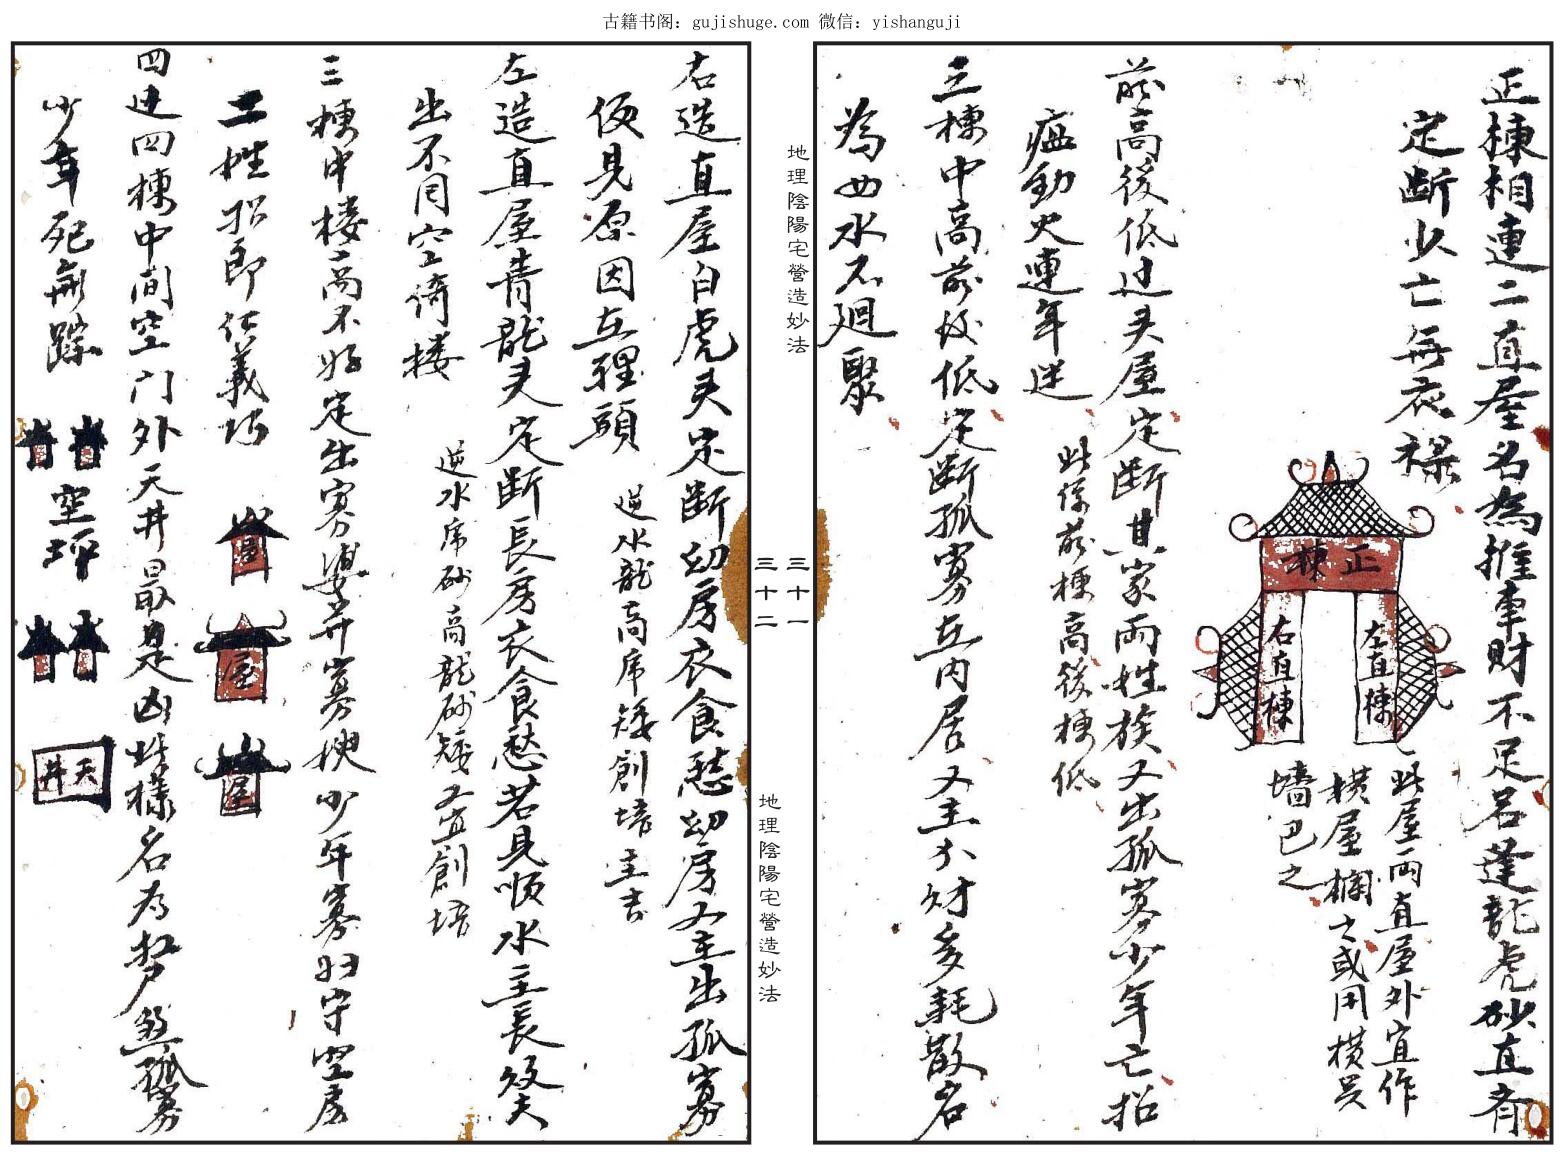 古籍书阁：gujishuge.com 微信：yishanguji
正棟相連二直屋名為推車財不足若逢龍虎砂直奔
定断少亡無衣禄
正棟
左直棟
右直棟
此屋两直屋外宜作
横屋欄之或用横
墻巴之
前高後低过头屋定断其家両姓族又出孤寡少年亡招
瘟動火連年迸
此係前棟高後棟低
三棟中高前後低定断孤寡在内居又主六财多耗散名
為四水不廻聚
地理陰陽宅營造妙法
三十一
右造直屋白虎头定断幼房衣食愁幼房又主出孤寡
便見原因在裡頭
逆水龍高虎矮創墻主吉
左造直屋青龍头定断長房衣食愁若見順水主長癸
出不同空倚楼
逆水虎砂高龍砂矮又宜創墻
三棟中楼高不好定出寡婆并寡嫂少年寡妇守空房
二姓招郎
義
屋
屋
屋
四边四棟中间空门外天井最是凶此樣名為 煞孤寡
少年死無踪
空坪
天井
地理陰陽宅營造妙法
三十二